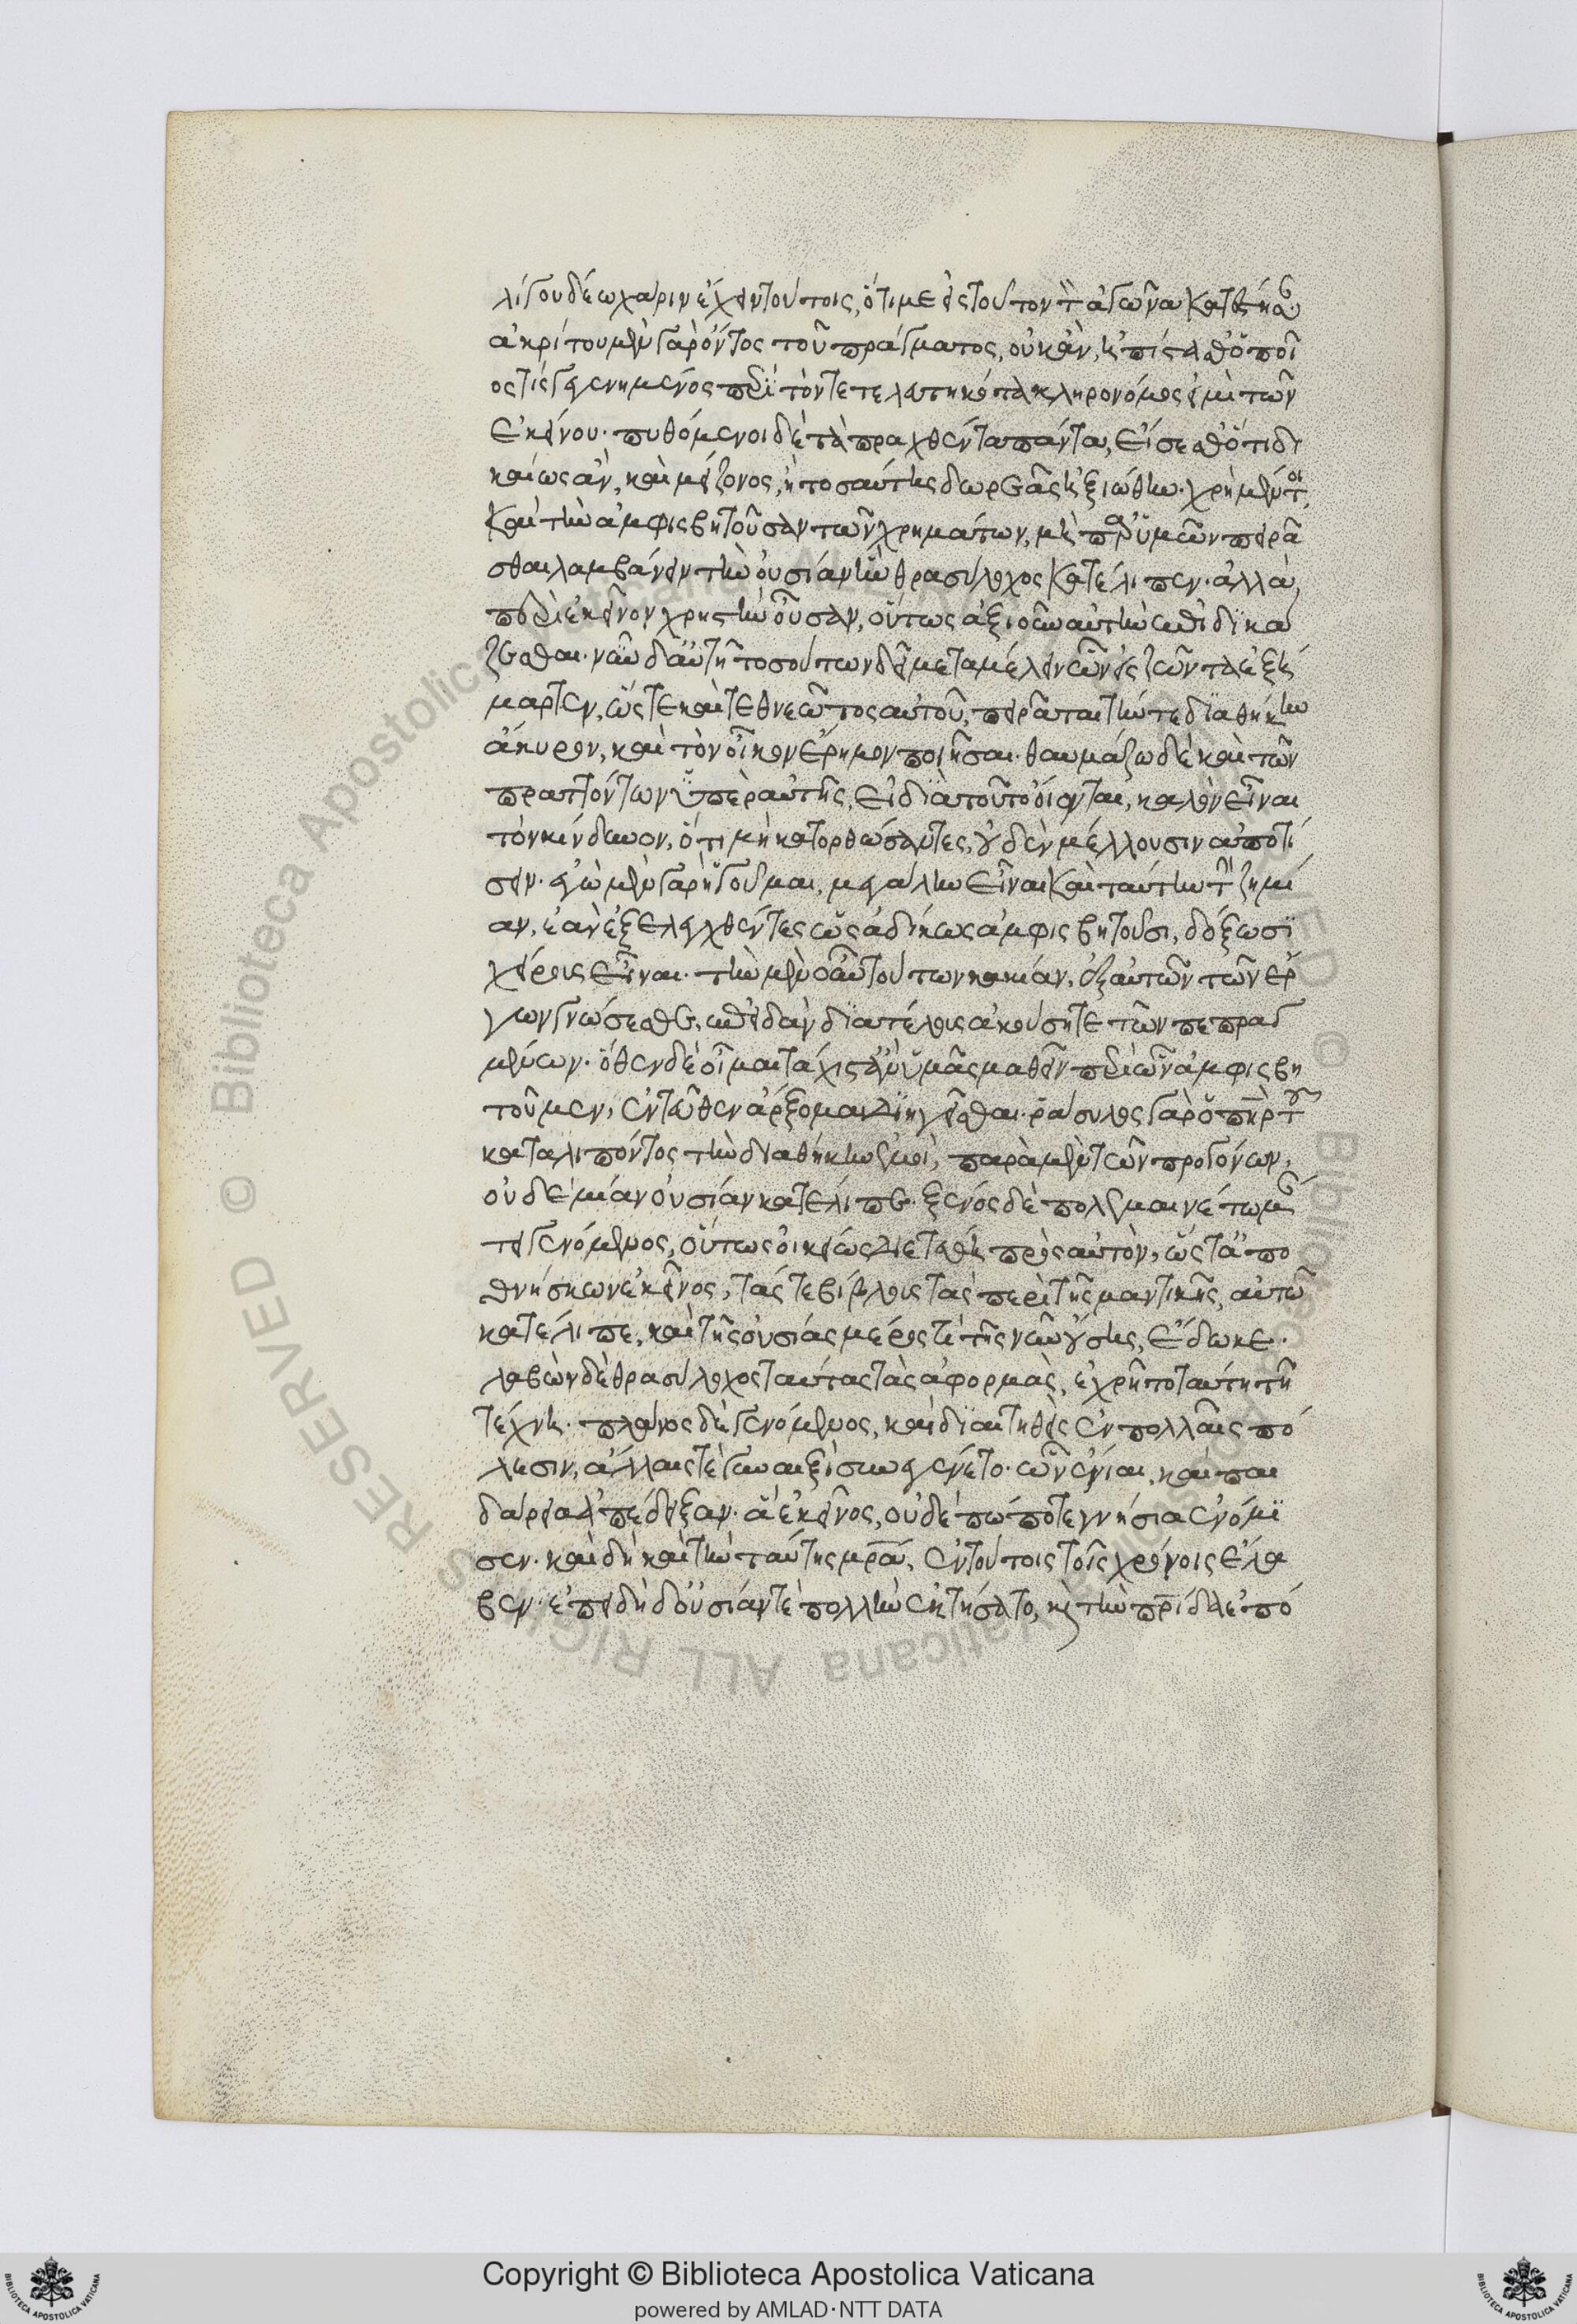 λίγου δέω χάριν ἔχειν τούτοις, ὅτι με εἰς τοῦτον τὸν ἀγῶνα κατέστησαν
ἀκρίτου μὲν γὰρ ὄντος τοῦ πράγματος, οὐκ ἂν ἠπίστασθ' ὁποῖ
ός τις γεγενημένος περὶ τὸν τετελευτηκότα κληρονόμος εἰμὶ τῶν
ἐκείνου· πυθόμενοι δὲ τὰ πραχθέντα πάντα, εἴσεσθ' ὅτι δι
καίως ἂν, καὶ μείζονος, ἢ τοσαύτης δωρεᾶς ἠξιώθην· χρὴ μέν τοι
καὶ τὴν ἀμφισβητοῦσαν τῶν χρημάτων, μὴ παρ' ὑμῶν πειρᾶ
σθαι λαμβάνειν τὴν οὐσίαν ἣν θρασύλοχος κατέλιπεν· ἀλλὰ,
περὶ ἐκεῖνον χρηστὴν οὖσαν, οὕτως ἀξιοῦν αὐτὴν ἐπιδικά
ζεσθαι· νῦν δ' αὐτῇ τοσούτου δεῖ μεταμέλειν ὧν εἰς ζῶντα ἐξή
μαρτεν, ὥστε καὶ τεθνεῶτος αὐτοῦ, πειρᾶται τήν τε διαθήκην
ἄκυρον, καὶ τὸν οἶκον ἔρημον ποιῆσαι· θαυμάζω δὲ καὶ τῶν
πραττόντων ὑπὲρ αὐτῆς, εἰ διὰ τοῦτο οἴονται, καλὸν εἶναι
τὸν κίνδυνον, ὅτι μὴ κατορθώσαντες, οὐδὲν μέλλουσιν ἀποτί
σειν· ἐγὼ μὲν γὰρ ἡγοῦμαι, μεγάλην εἶναι καὶ ταύτην τὴν ζημί
αν, ἐὰν ἐξελεγχθέντες ὡς ἀδίκως ἀμφισβητοῦσι, δόξωσι
χείρους εἶναι· τὴν μὲν οὖν τούτων κακίαν, ἐξ αὐτῶν τῶν ἔρ
γων γνώσεσθε, ἐπειδὰν διὰ τέλους ἀκούσητε τῶν πεπραγ
μένων· ὅθεν δὲ οἶμαι τάχιστ' ἂν ὑμᾶς μαθεῖν περὶ ὧν ἀμφισβη
τοῦμεν, ἐντεῦθεν ἄρξομαι διηγεῖσθαι· ράσυλος γὰρ ὁ πὴρ τοῦ
καταλιπόντος τὴν διαθήκην ἐμοὶ, παρὰ μὲν τῶν προγόνων,
οὐδεμίαν οὐσίαν κατέλιπε· ξένος δὲ πολεμαινέτῳ μάν
τει γενόμενος, οὕτως οἰκείως διετέθη πρὸς αὐτὸν, ὥστ' ἀπο
θνήσκων ἐκεῖνος, τάς τε βίβλους τὰς περὶ τῆς μαντικῆς, αὐτῷ
κατέλιπε, καὶ τῆς οὐσίας μέρος τι τῆς νῦν οὔσης, ἔδωκε·
λαβὼν δὲ θρασύλοχος ταύτας τὰς ἀφορμὰς, ἐχρῆτο ταύτῃ τῇ
τέχνῃ· πλάνος δὲ γενόμενος, καὶ διαιτηθεὶς ἐν πολλαῖς πό
λεσιν, ἄλλαις τε γυναιξὶ συνεγένετο· ὧν ἔνιαι, καὶ παι
δάρια ἀπέδειξαν· ἃ ἐκεῖνος, οὐδὲ πώποτε γνήσια ἐνόμι
σεν· καὶ δὴ καὶ τὴν ταύτης μρα, ἐν τούτοις τοῖς χρόνοις ἔλα
βεν· ἐπειδὴ δ' οὐσίαν τε πολλὴν ἐκτήσατο, καὶ τὴν πρίδα ἐπό